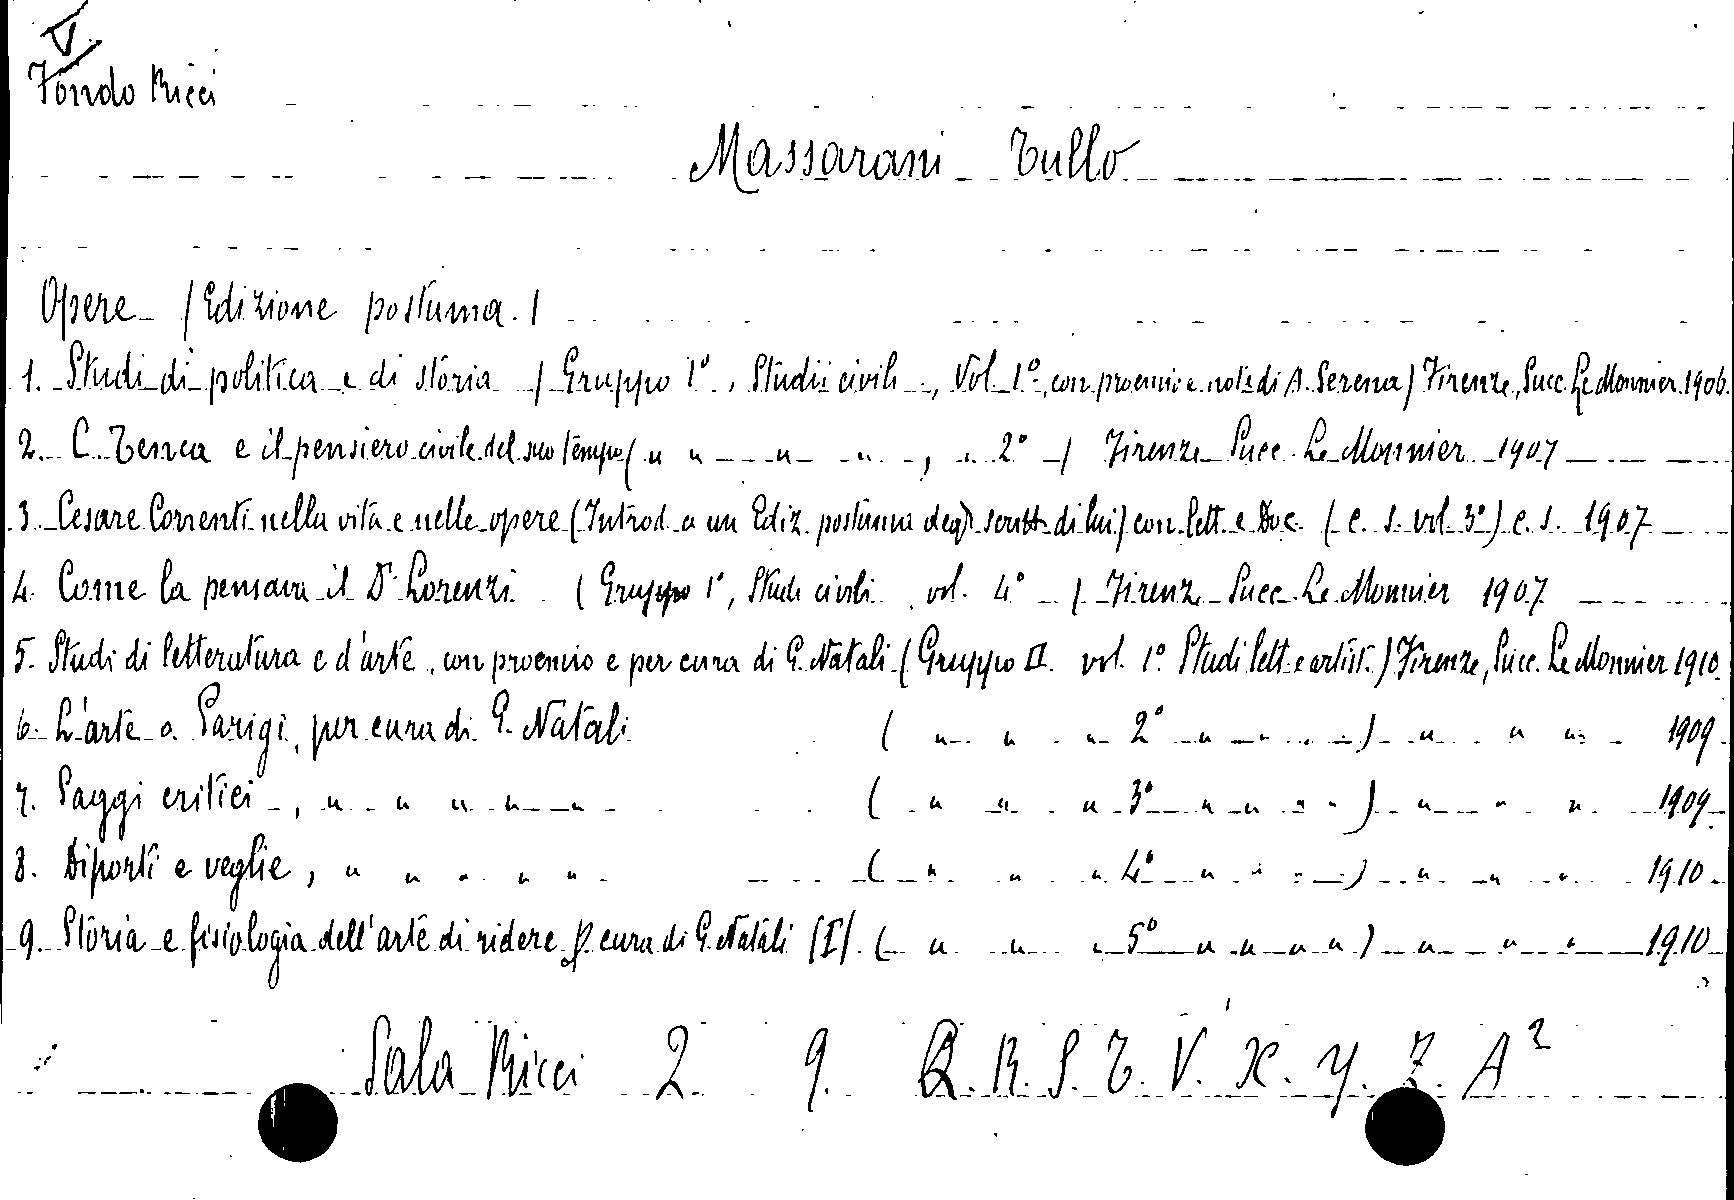 V
Fondo Ricci
Massarani Tullo
Opere (Edizione postuma.)
1. Studi di politica e di storia (Gruppo 1°, Studii civili, Vol. 1°, con proemio e note di A. Serena) Firenze, Succ. Le Monnier 1906.
2. C. Tenca e il pensiero civile del suo tempo ( " " " " , " 2° ) Firenze Succ. Le Monnier 1907
3. Cesare Correnti nella vita e nelle opere (Introd. a un Ediz. postuma degli scritti di lui) con lett. e Doc. (c. s. vol. 3°) c. s. 1907
4. Come la pensava il Dr Lorenzi (Gruppo 1°, Studi civili vol. 4° ) Firenz Succ. Le Monnier 1907
5. Studi di letteratura e d'arte, con proemio e per cura di G. Natali (Gruppo II vol. 1° Studi lett. e artist.) Firenze, Succ. Le Monnier 1910.
6. L'arte a Parigi, per cura di G. Natali ( " " " 2° " " " " ) " " " 1909
7. Saggi critici, " " " " " ( " " " 3° " " " " ) " " " 1909.
8. Diporti e veglie, " " " " " ( " " " 4° " " " " ) " " " " 1910.
9. Storia e fisiologia dell'arte di ridere p. cura di G. Natali (I). ( " " " 5° " " " " ) " " " 1910
Sala Ricci 2. 9. Q. R. S. T. V. X. Y. Z. A²